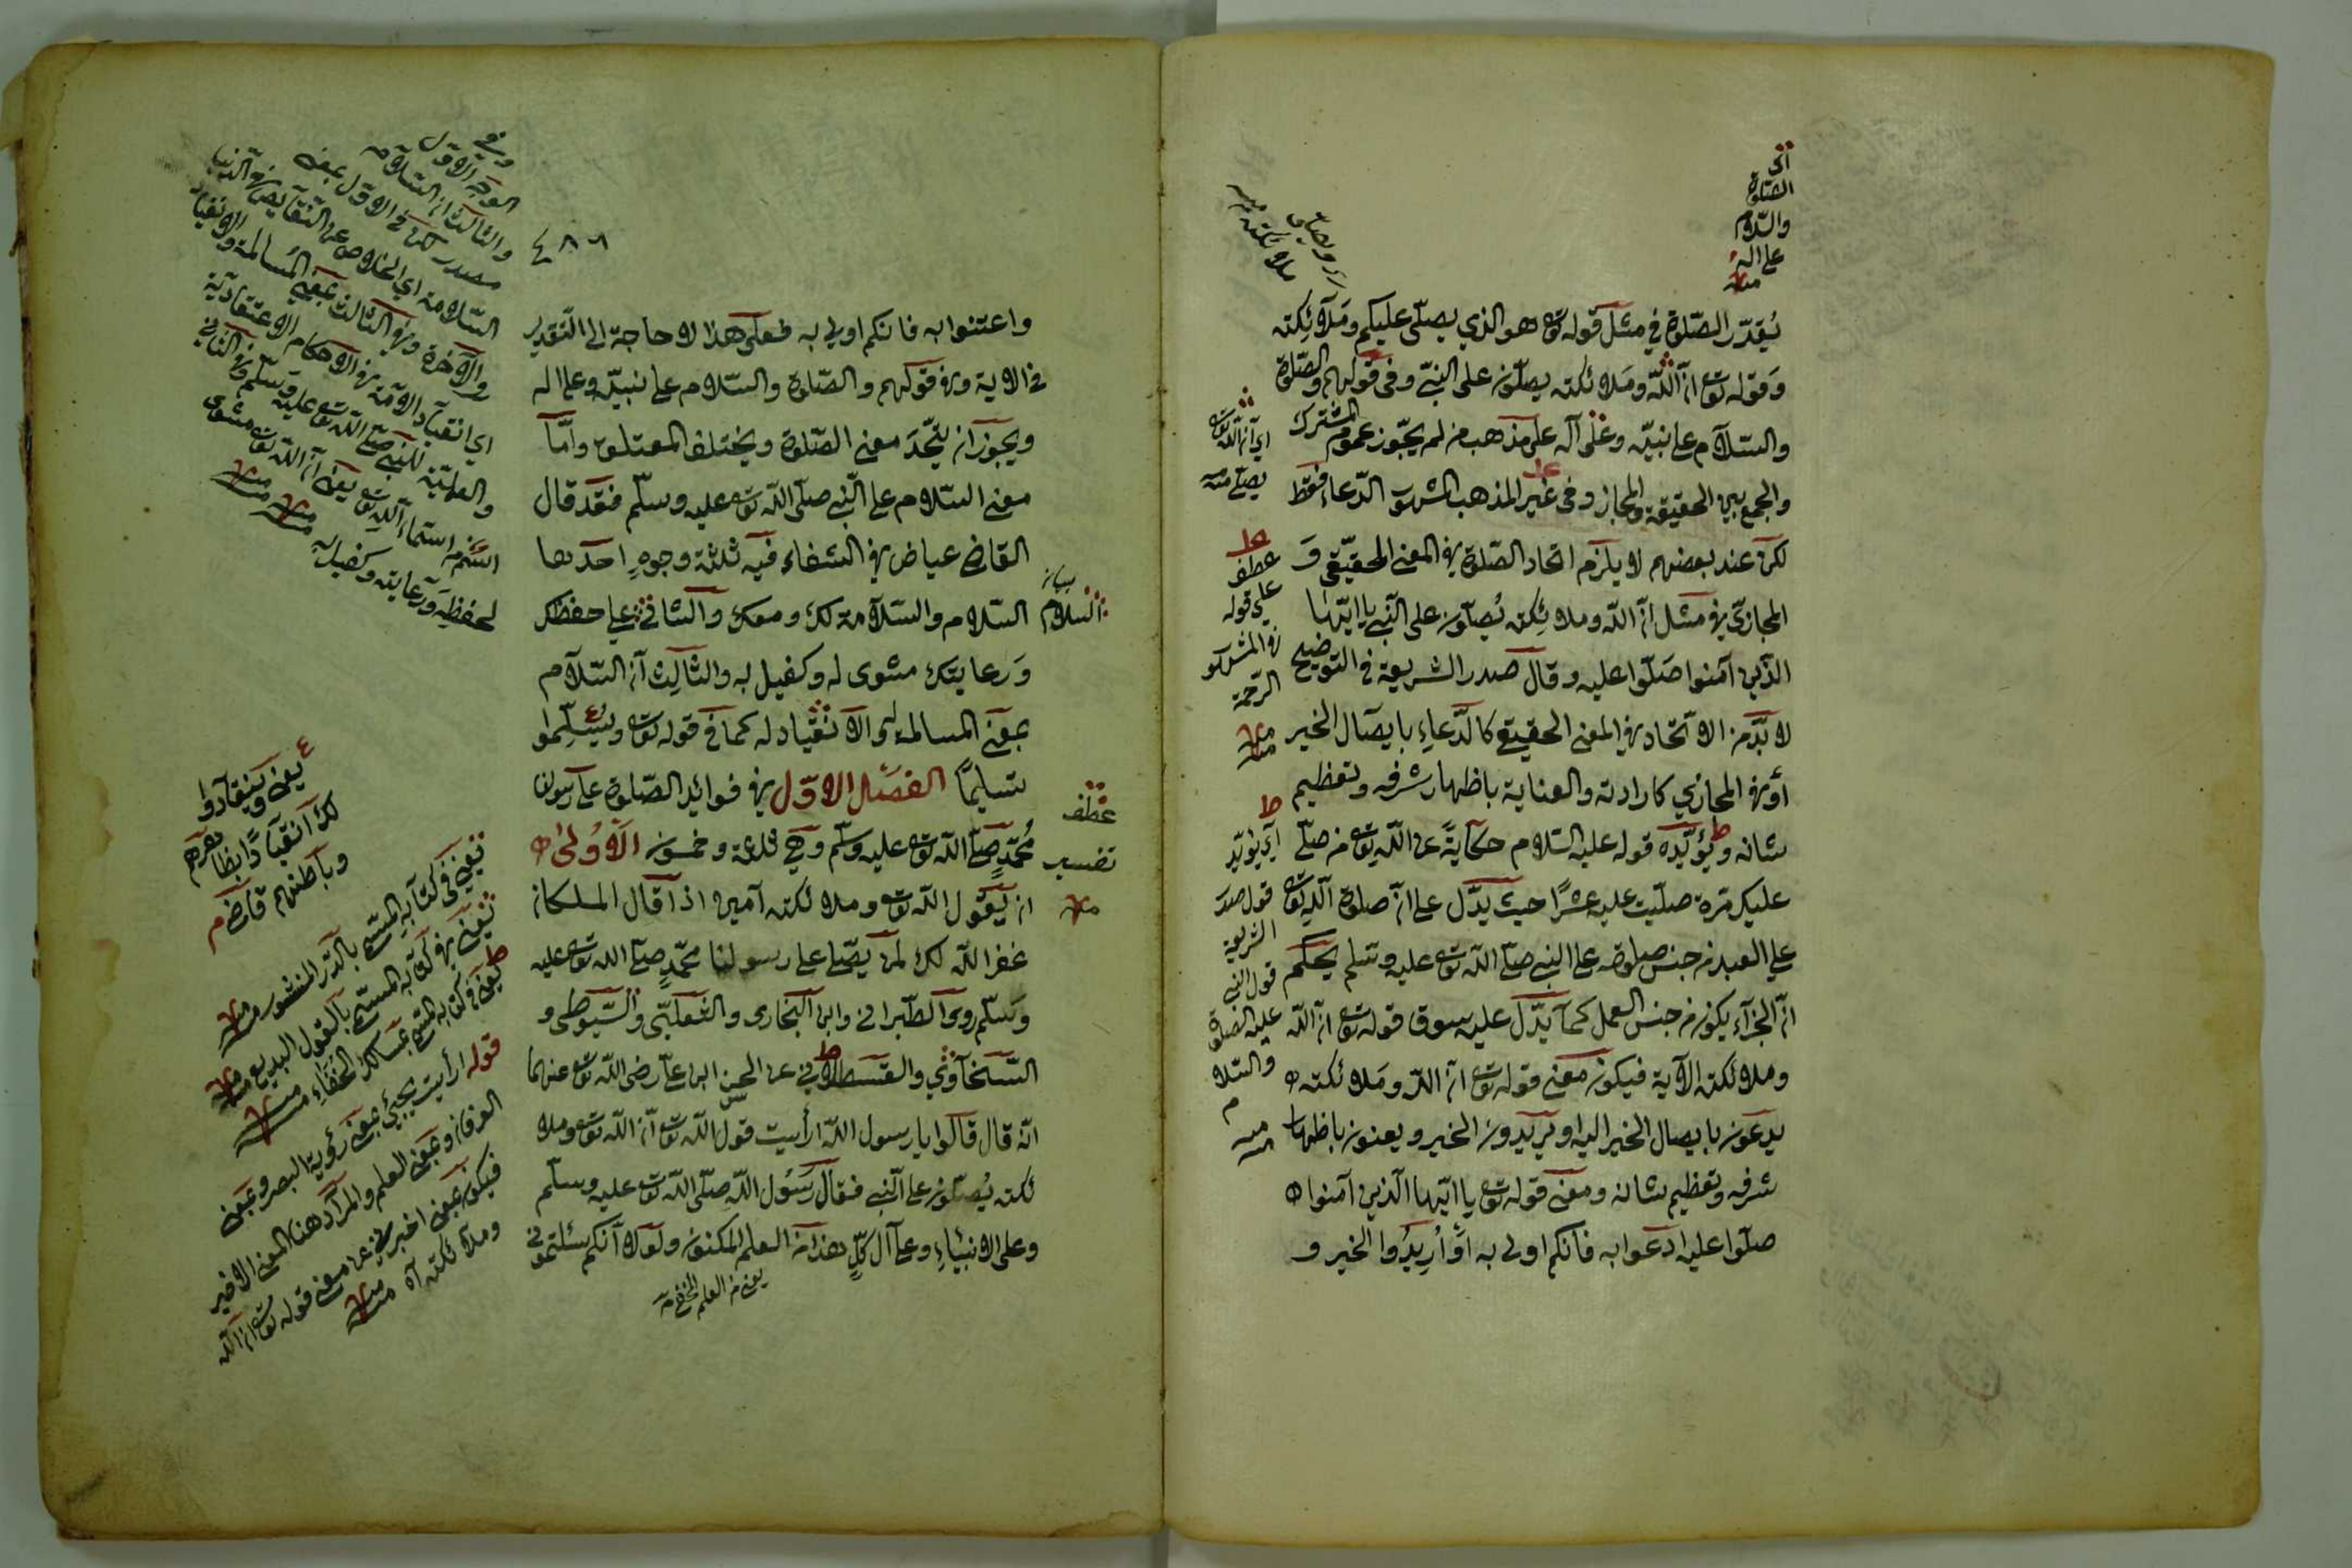 يُقدّر الصّلوة في مثل قوله تع هو الذي يصلّى عليكم وملآئكته
وقوله تع انّ اللّه وملائكته يصلّون على النبيّ وفى قولهم والصّلوة
والسّلام على نبيّه وعلى آله على مذهب من لم يجوّز عموم المشترك
والجمع بين الحقيقة والمجاز وفى غير المذهب المشهور الدّعاء فقط
لكن عند بعضهم لا يلزم اتحاد الصّلوة في المعنى الحقيقى و
المجازيّ في مثل انّ اللّه وملائكته يُصلّون على النّبي يا ايّها
الذين آمنوا صلّوا عليه وقال صدر الشريعة في التوضيح
لا بدّ من الاتّحاد في المعنى الحقيقي كالدّعاء بايصال الخير
أو في المجازي كارادته والعناية باظهار شرفه وتعظيم
شانه ويؤيّده قوله عليه السّلام حكايةً عن اللّه تع من صلّى
عليك مرة صلّيت عليه عشرًا حيث يدّل على انّ صلوة اللّه تع
على العبد من جنس صلوته على النبي صلّى اللّه تع عليه وسلم بحكم
انّ الجزآء يكون من جنس العمل كما يدّل عليه سوق قوله تع انّ اللّه
وملائكته الآية فيكون معنى قوله تع انّ اللّه وملائكته
يدعون بايصال الخير اليه او يريدون الخير ويعنون باظهار
شرفه وتعظيم شانه ومعنى قوله تع يا ايّها الّذين آمنوا
صلّوا عليه ادعوا به فانكم اولى به أو أريدُوا الخير و
اى
الصّلوة
والسّلام
على اله
منه
اي انّ اللّه تع
يصلّى منه
عطف
على قوله
في المشهور
الرّحمة
منه
اي يؤيّد
قول صدر
الشريعة
قول النبي
عليه الصلوة
والسّلام
منه
٤٨٦
واعتنوا به فانكم اولى به فعلى هذا لا حاجة الى التّقدير
في الاية وفي قولهم والصّلوة والسّلام على نبيّه وعلى اله
ويجوز ان يتّحد معنى الصّلوة ويختلف المعتلق وامّا
معنى السّلام على النّبي صلّى اللّه تع عليه وسلّم فقد قال
القاضى عياض في الشفاء فيه ثلثة وجوهٍ احدها
السّلام والسّلامة لك ومعك والثاني على حفظك
ورعايتك متوى له وكفيل به والثالث انّ السّلام
بمعنى المسالمة والانقياد له كما في قوله تع ويُسلّموا
تسليمًا الفصل الاوّل في فوائد الصّلوة على رسولنا
مُحمّدٍ صلّى اللّه تع عليه وسلّم وهى ثلاثة وخمسون الأولى
ان يقول اللّه تع وملائكته آمين اذا قال الملكان
غفر اللّه لك لمن يصّلى على رسولنا محمّدٍ صلّى اللّه تع عليه
وسلّم روى الطّبراني وابن البخارى والثعلبّى والسّيوطى و
السّخاويّ والقسطلاني عن الحسن ابن علي رضى اللّه تع عنهما
انّه قال قالوا يا رسول اللّه ارأيت قول اللّه تع انّ اللّه تع وملا
ئكته يُصلّون على النّبي فقال رسُول اللّه صلّى اللّه تع عليه وسلّم
وعلى الانبياء وعلى آل كلٍّ هذا من العلم المكنون ولولا انّكم سئلتموني
يعنى من العلم المخفي منه
بيان
السّلام
عطف
تفسير
منه
وفي
الوجه الاوّل
والثالث انّ السّلام
مصدر لكن في الاوّل بمعنى
السّلامة اي الخلاص عن النّقايص في الدّنيا
والآخرة وفي الثالث بمعنى المُسالمة والانقياد
اي انقياد الامّة في الاحكام الاعتقاديّة
والعمليّة للنّبي صلّى اللّه تع عليه وسلّم وفي الثاني
اسم من اسماء اللّه تع يعنى انّ اللّه تع متوى
لحفظه ورعايته وكفيل له منه
يعنى وينقادوا
لك انقيادًا بظاهرهم
وباطنهم قاضى م
يعنى في كتابه المسمّى بالدّر المنثور منه
يعنى في كتابه المسمّى بالقول البديع منه
يعنى في كتابه المسمّى بمسالك الحنفاء منه
قوله ارأيت يجئ بمعنى رؤية البصر وبمعنى
العرفان وبمعنى العلم والمراد هنا المعنى الاخير
فيكون بمعنى اخبرني عن معنى قوله تع انّ اللّه
وملآئكته آه منه